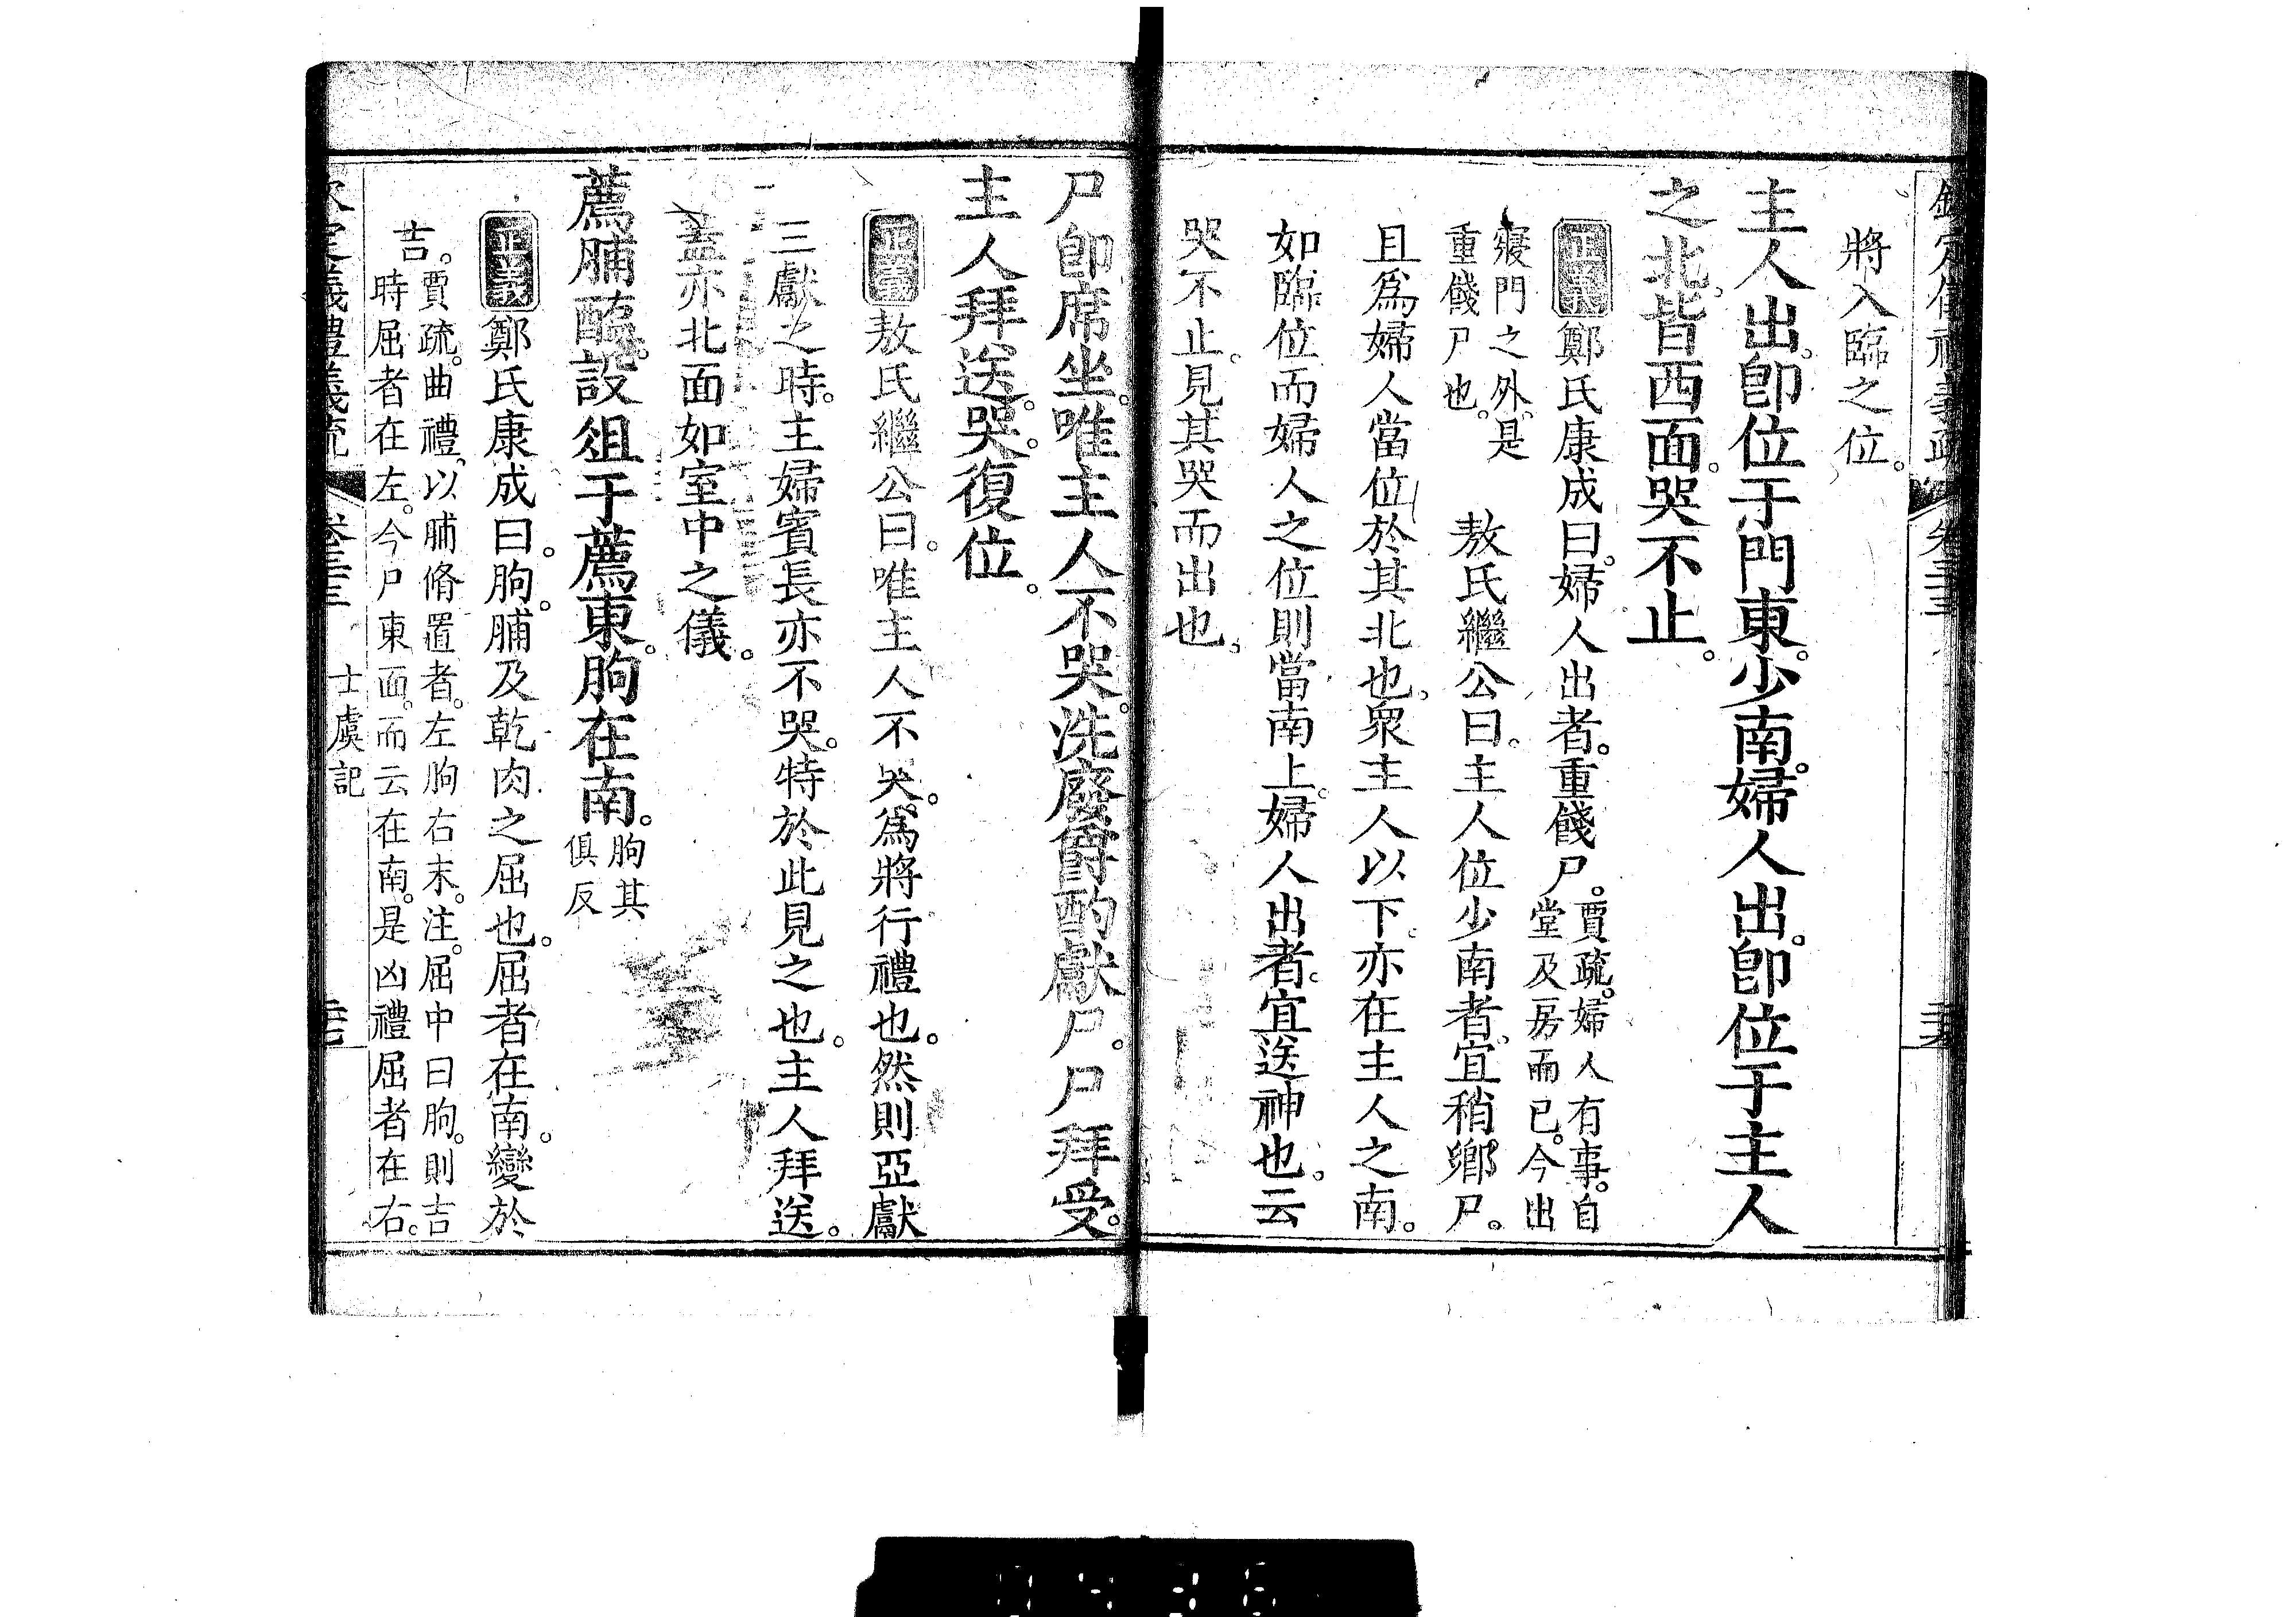 將入臨之位。
主人出。卽位于門東。少南。婦人出。卽位于主人
之北。皆西面。哭不止。
正義鄭氏康成曰。婦人出者。重餞尸。賈疏。婦人有事。自
堂及房而已。今出
寢門之外。是
重餞尸也。
敖氏繼公曰。主人位少南者。宜稍鄉尸。
且爲婦人當位於其北也。衆主人以下。亦在主人之南。
如臨位而婦人之位則當南上。婦人出者。宜送神也。云
哭不止。見其哭而出也。
尸卽席坐。唯主人不哭。洗廢爵酌獻尸。尸拜受。
主人拜送。哭。復位。
正義敖氏繼公曰。唯主人不哭。爲將行禮也。然則亞獻
三獻之時。主婦賓長亦不哭。特於此見之也。主人拜送。
蓋亦北面如室中之儀。
薦脯醢。設俎于薦東。朐在南。朐其
俱反
正義鄭氏康成曰。朐。脯及乾肉之屈也。屈者在南。變於
吉。賈疏。曲禮。以脯脩置者。左朐右末。注。屈中曰朐。則吉
時屈者在左。今尸東面。而云在南。是凶禮屈者在右。
士虞記